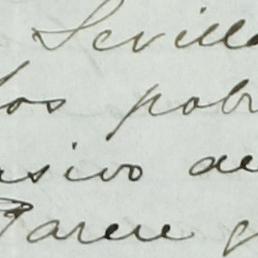 Sevilla
los pobr
usivo de
Parece g